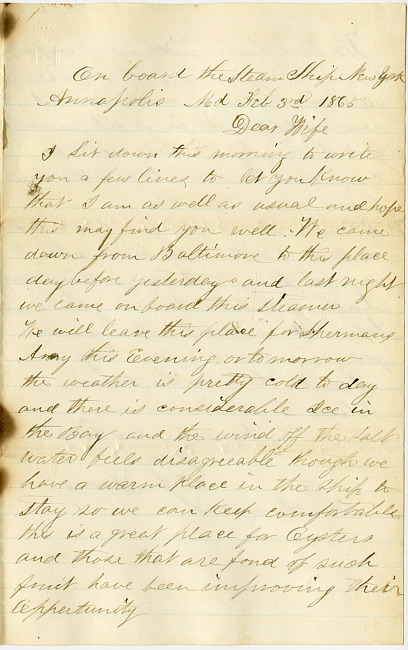 On board the Steam Ship New York
Annapolis Md Feb 3rd 1865
Dear Wife
I Sit down this morning to write
you a few lines to let you Know
that I am as well as usual and hope
this may find you well. We came
down from Baltimore to this place
day before yesterday and last night
we came on board this steamer
We will leave this place for Shermans
Army this Evening or tomorrow
the weather is pretty cold to day
and there is considerable Ice in
the Bay and the wind off the Salt
water feels disagreeable though we
have a warm place in the ship to
stay so we can Keep comfortable
this is a great place for Oysters
and those that are fond of such
fruit have been improving their
Oppertunity